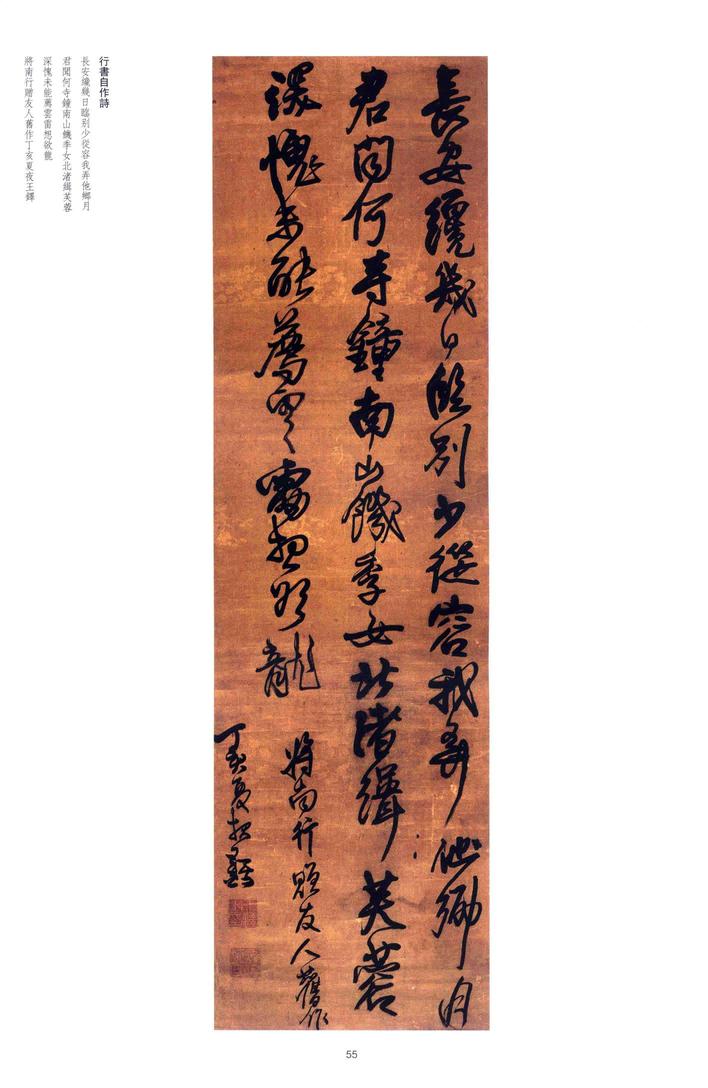 行書自作詩
長安纔幾日臨别少從容我弄他鄉月
君聞何寺鐘南山饑季女北渚緝芙蓉
深愧未能薦雲雷想欲龍
將南行贈友人舊作丁亥夏夜王鐸
長安纔幾日臨别少從容我弄他鄉月
君聞何寺鐘南山饑季女北渚緝芙蓉
深愧未能薦雲雷想欲龍
將南行贈友人舊作
丁亥夏夜王鐸
55